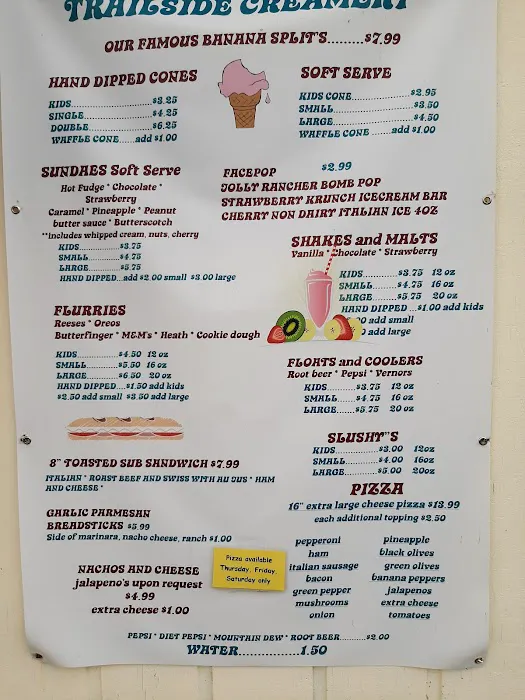 TRAILSIDE CREAMERY
OUR FAMOUS BANANA SPLIT'S.........$7.99
HAND DIPPED CONES
KIDS.........................$3.25
SINGLE.....................$4.25
DOUBLE....................$6.25
WAFFLE CONE......add $1.00
SOFT SERVE
KIDS CONE.........................$2.95
SMALL...............................$3.50
LARGE...............................$4.50
WAFFLE CONE .......add $1.00
SUNDAES Soft Serve
Hot Fudge * Chocolate *
Strawberry
Caramel * Pineapple * Peanut
butter sauce * Butterscotch
**includes whipped cream, nuts, cherry
KIDS..............$3.75
SMALL...........$4.75
LARGE...........$5.75
HAND DIPPED...add $2.00 small $3.00 large
FACEPOP $2.99
JOLLY RANCHER BOMB POP
STRAWBERRY KRUNCH ICECREAM BAR
CHERRY NON DAIRY ITALIAN ICE 4OZ
SHAKES and MALTS
Vanilla * Chocolate * Strawberry
KIDS...........$3.75 12 oz
SMALL........$4.75 16 oz
LARGE........$5.75 20 oz
HAND DIPPED ...$1.00 add kids
add small
add large
FLURRIES
Reeses * Oreos
Butterfinger * M&M's * Heath * Cookie dough
KIDS..............$4.50 12 oz
SMALL...........$5.50 16 oz
LARGE...........$6.50 20 oz
HAND DIPPED....$1.50 add kids
$2.50 add small $3.50 add large
FLOATS and COOLERS
Root beer * Pepsi * Vernors
KIDS............$3.75 12 oz
SMALL.........$4.75 16 oz
LARGE.........$5.75 20 oz
SLUSHY"S
KIDS..............$3.00 12oz
SMALL...........$4.00 16oz
LARGE...........$5.00 20oz
8" TOASTED SUB SANDWICH $7.99
ITALIAN * ROAST BEEF AND SWISS WITH AU JUS * HAM
AND CHEESE *
PIZZA
16" extra large cheese pizza $13.99
each additional topping $2.50
pepperoni pineapple
ham black olives
italian sausage green olives
bacon banana peppers
green pepper jalapenos
mushrooms extra cheese
onion tomatoes
GARLIC PARMESAN
BREADSTICKS $5.99
Side of marinara, nacho cheese, ranch $1.00
Pizza available
Thursday, Friday,
Saturday only
NACHOS AND CHEESE
jalapeno's upon request
$4.99
extra cheese $1.00
PEPSI * DIET PEPSI * MOUNTAIN DEW * ROOT BEER.........$2.00
WATER...............1.50